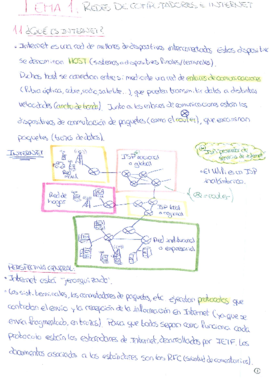 TEMA 1. REDES DE COMPUTADORES E INTERNET
1.1 ¿QUÉ ES INTERNET?
• Internet es una red de millones de dispositivos interconectados. Estos dispositivos
se denominan HOST (sistemas
Dichos host se conectan entre sí mediante una red de enlaces de comunicaciones
(fibra óptica, cobre, radio, satélite...) que pueden transmitir datos a distintas
velocidades (ancho de banda). Junto a los enlaces de comunicaciones están los
dispositivos de conmutación de paquetes (como el router), que
paquetes (trozos de datos).
INTERNET
ISP nacional
o global
ISP: proveedor de
servicio de internet
Red
móvil
• El
inalámbrico.
Red de
hogar
= router
ISP local
o regional
Red institucional
o empresarial
PERSPECTIVA GENERAL
• Internet está "jerarquizado".
• Los sist. terminales, los conmutadores de paquetes, etc ejecutan protocolos que
controlan el envío y la recepción de la información en Internet (ya que se
envía fragmentada, en trozos). Para que todos sepan como funciona cada
protocolo están los estándares de Internet, desarrollados por IETF. Los
documentos asociados a los estándares son los RFC (solicitud de comentarios).
1